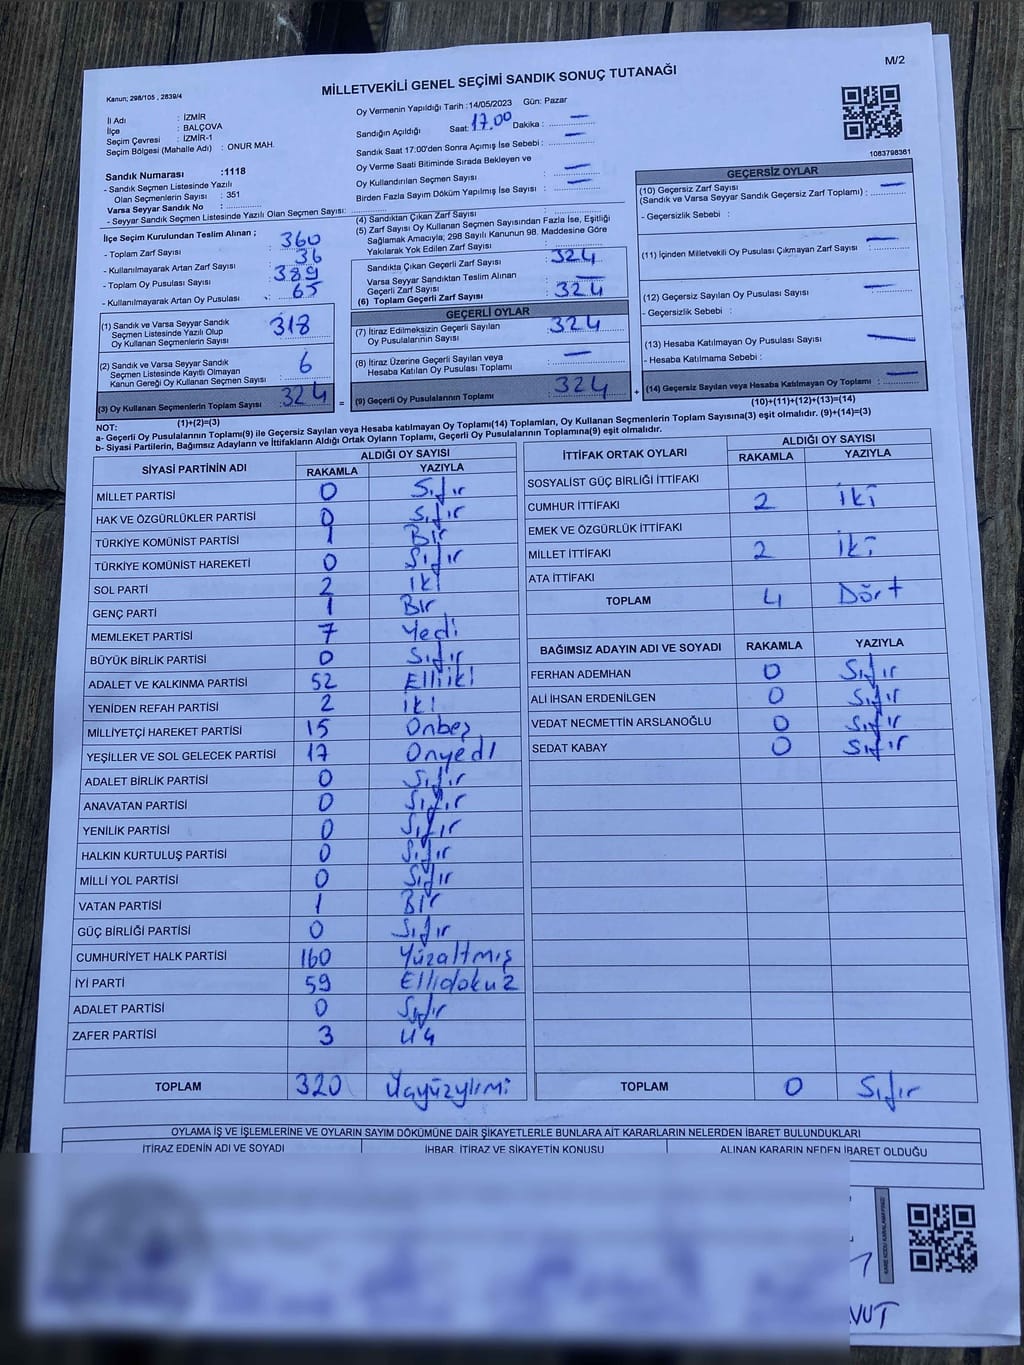 M/2
Kanun; 298/105 , 2839/4
MİLLETVEKİLİ GENEL SEÇİMİ SANDIK SONUÇ TUTANAĞI
İl Adı : İZMİR
İlçe : BALÇOVA
Seçim Çevresi : İZMİR-1
Seçim Bölgesi (Mahalle Adı) : ONUR MAH.
Sandık Numarası :1118
- Sandık Seçmen Listesinde Yazılı
Olan Seçmenlerin Sayısı : 351
Varsa Seyyar Sandık No :
- Seyyar Sandık Seçmen Listesinde Yazılı Olan Seçmen Sayısı:
Oy Vermenin Yapıldığı Tarih :14/05/2023 Gün: Pazar
Sandığın Açıldığı Saat: 17.00 Dakika : —
Sandık Saat 17:00'den Sonra Açımış İse Sebebi : —
Oy Verme Saati Bitiminde Sırada Bekleyen ve
Oy Kullandırılan Seçmen Sayısı : —
Birden Fazla Sayım Döküm Yapılmış İse Sayısı : —
1083798361
İlçe Seçim Kurulundan Teslim Alınan ;
- Toplam Zarf Sayısı : 360
- Kullanılmayarak Artan Zarf Sayısı : 36
- Toplam Oy Pusulası Sayısı : 389
- Kullanılmayarak Artan Oy Pusulası : 65
(1) Sandık ve Varsa Seyyar Sandık
Seçmen Listesinde Yazılı Olup
Oy Kullanan Seçmenlerin Sayısı : 318
(2) Sandık ve Varsa Seyyar Sandık
Seçmen Listesinde Kayıtlı Olmayan
Kanun Gereği Oy Kullanan Seçmen Sayısı : 6
(3) Oy Kullanan Seçmenlerin Toplam Sayısı : 324
(1)+(2)=(3)
(4) Sandıktan Çıkan Zarf Sayısı :
(5) Zarf Sayısı Oy Kullanan Seçmen Sayısından Fazla İse, Eşitliği
Sağlamak Amacıyla; 298 Sayılı Kanunun 98. Maddesine Göre
Yakılarak Yok Edilen Zarf Sayısı :
Sandıkta Çıkan Geçerli Zarf Sayısı : 324
Varsa Seyyar Sandıktan Teslim Alınan
Geçerli Zarf Sayısı : —
(6) Toplam Geçerli Zarf Sayısı : 324
GEÇERLİ OYLAR
(7) İtiraz Edilmeksizin Geçerli Sayılan
Oy Pusulalarının Sayısı : 324
(8) İtiraz Üzerine Geçerli Sayılan veya
Hesaba Katılan Oy Pusulası Toplamı : —
= (9) Geçerli Oy Pusulalarının Toplamı : 324 +
GEÇERSİZ OYLAR
(10) Geçersiz Zarf Sayısı
(Sandık ve Varsa Seyyar Sandık Geçersiz Zarf Toplamı) : —
- Geçersizlik Sebebi :
(11) İçinden Milletvekili Oy Pusulası Çıkmayan Zarf Sayısı : —
(12) Geçersiz Sayılan Oy Pusulası Sayısı : —
- Geçersizlik Sebebi :
(13) Hesaba Katılmayan Oy Pusulası Sayısı : —
- Hesaba Katılmama Sebebi :
(14) Geçersiz Sayılan veya Hesaba Katılmayan Oy Toplamı : —
(10)+(11)+(12)+(13)=(14)
NOT:
a- Geçerli Oy Pusulalarının Toplamı(9) ile Geçersiz Sayılan veya Hesaba katılmayan Oy Toplamı(14) Toplamları, Oy Kullanan Seçmenlerin Toplam Sayısına(3) eşit olmalıdır. (9)+(14)=(3)
b- Siyasi Partilerin, Bağımsız Adayların ve İttifakların Aldığı Ortak Oyların Toplamı, Geçerli Oy Pusulalarının Toplamına(9) eşit olmalıdır.
SİYASİ PARTİNİN ADI ALDIĞI OY SAYISI
RAKAMLA YAZIYLA
MİLLET PARTİSİ 0 Sıfır
HAK VE ÖZGÜRLÜKLER PARTİSİ 0 Sıfır
TÜRKİYE KOMÜNİST PARTİSİ 1 Bir
TÜRKİYE KOMÜNİST HAREKETİ 0 Sıfır
SOL PARTİ 2 iki
GENÇ PARTİ 1 Bir
MEMLEKET PARTİSİ 7 Yedi
BÜYÜK BİRLİK PARTİSİ 0 Sıfır
ADALET VE KALKINMA PARTİSİ 52 Elliiki
YENİDEN REFAH PARTİSİ 2 iki
MİLLİYETÇİ HAREKET PARTİSİ 15 Onbeş
YEŞİLLER VE SOL GELECEK PARTİSİ 17 Onyedi
ADALET BİRLİK PARTİSİ 0 Sıfır
ANAVATAN PARTİSİ 0 Sıfır
YENİLİK PARTİSİ 0 Sıfır
HALKIN KURTULUŞ PARTİSİ 0 Sıfır
MİLLİ YOL PARTİSİ 0 Sıfır
VATAN PARTİSİ 1 Bir
GÜÇ BİRLİĞİ PARTİSİ 0 Sıfır
CUMHURİYET HALK PARTİSİ 160 Yüzaltmış
İYİ PARTİ 59 Ellidokuz
ADALET PARTİSİ 0 Sıfır
ZAFER PARTİSİ 3 Üç
TOPLAM 320 Üçyüzyirmi
İTTİFAK ORTAK OYLARI ALDIĞI OY SAYISI
RAKAMLA YAZIYLA
SOSYALİST GÜÇ BİRLİĞİ İTTİFAKI
CUMHUR İTTİFAKI 2 iki
EMEK VE ÖZGÜRLÜK İTTİFAKI
MİLLET İTTİFAKI 2 iki
ATA İTTİFAKI
TOPLAM 4 Dört
BAĞIMSIZ ADAYIN ADI VE SOYADI RAKAMLA YAZIYLA
FERHAN ADEMHAN 0 Sıfır
ALİ İHSAN ERDENİLGEN 0 Sıfır
VEDAT NECMETTİN ARSLANOĞLU 0 Sıfır
SEDAT KABAY 0 Sıfır
TOPLAM 0 Sıfır
OYLAMA İŞ VE İŞLEMLERİNE VE OYLARIN SAYIM DÖKÜMÜNE DAİR ŞİKAYETLERLE BUNLARA AİT KARARLARIN NELERDEN İBARET BULUNDUKLARI
İTİRAZ EDENİN ADI VE SOYADI İHBAR, İTİRAZ VE ŞİKAYETİN KONUSU ALINAN KARARIN NEDEN İBARET OLDUĞU